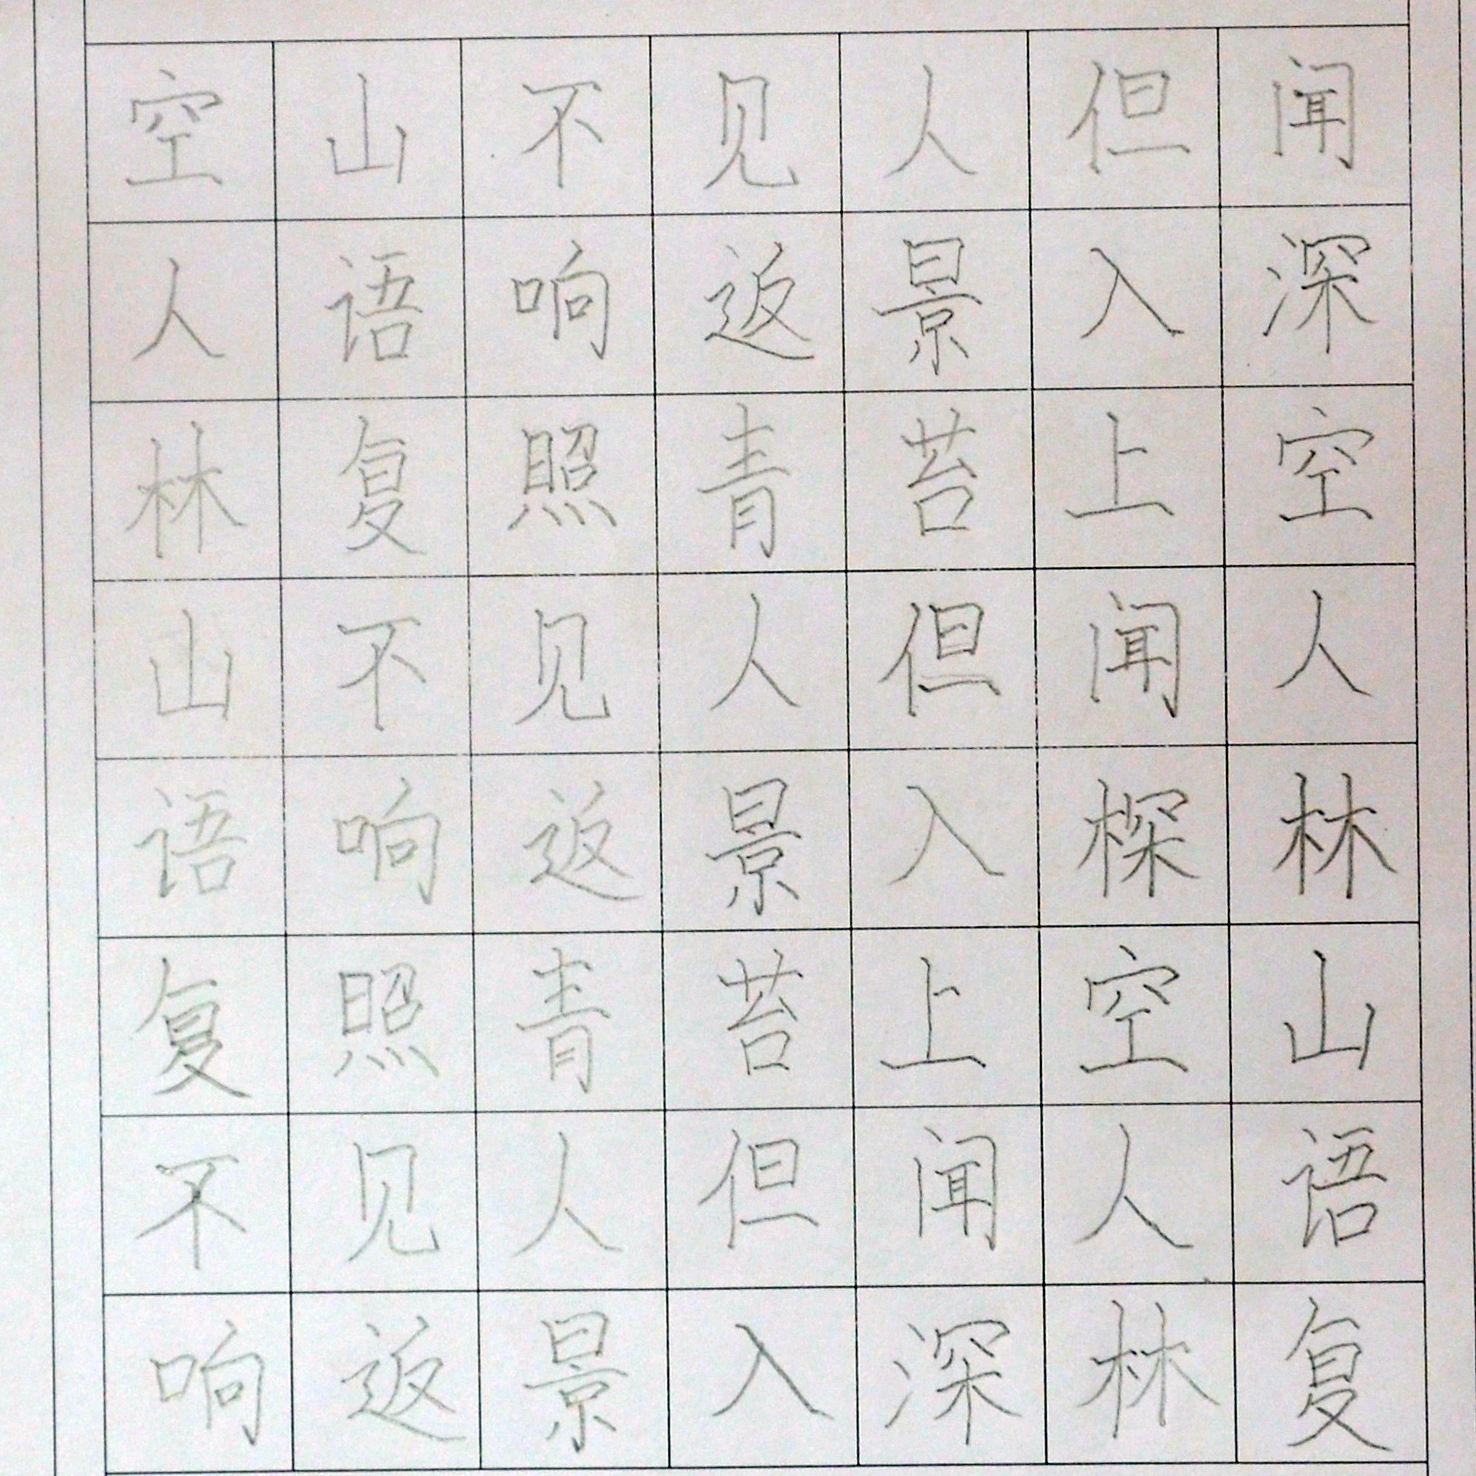 空山不见人但闻
人语响返景入深
林复照青苔上空
山不见人但闻人
语响返景入棎林
复照青苔上空山
不见人但闻人语
响返景入深林复